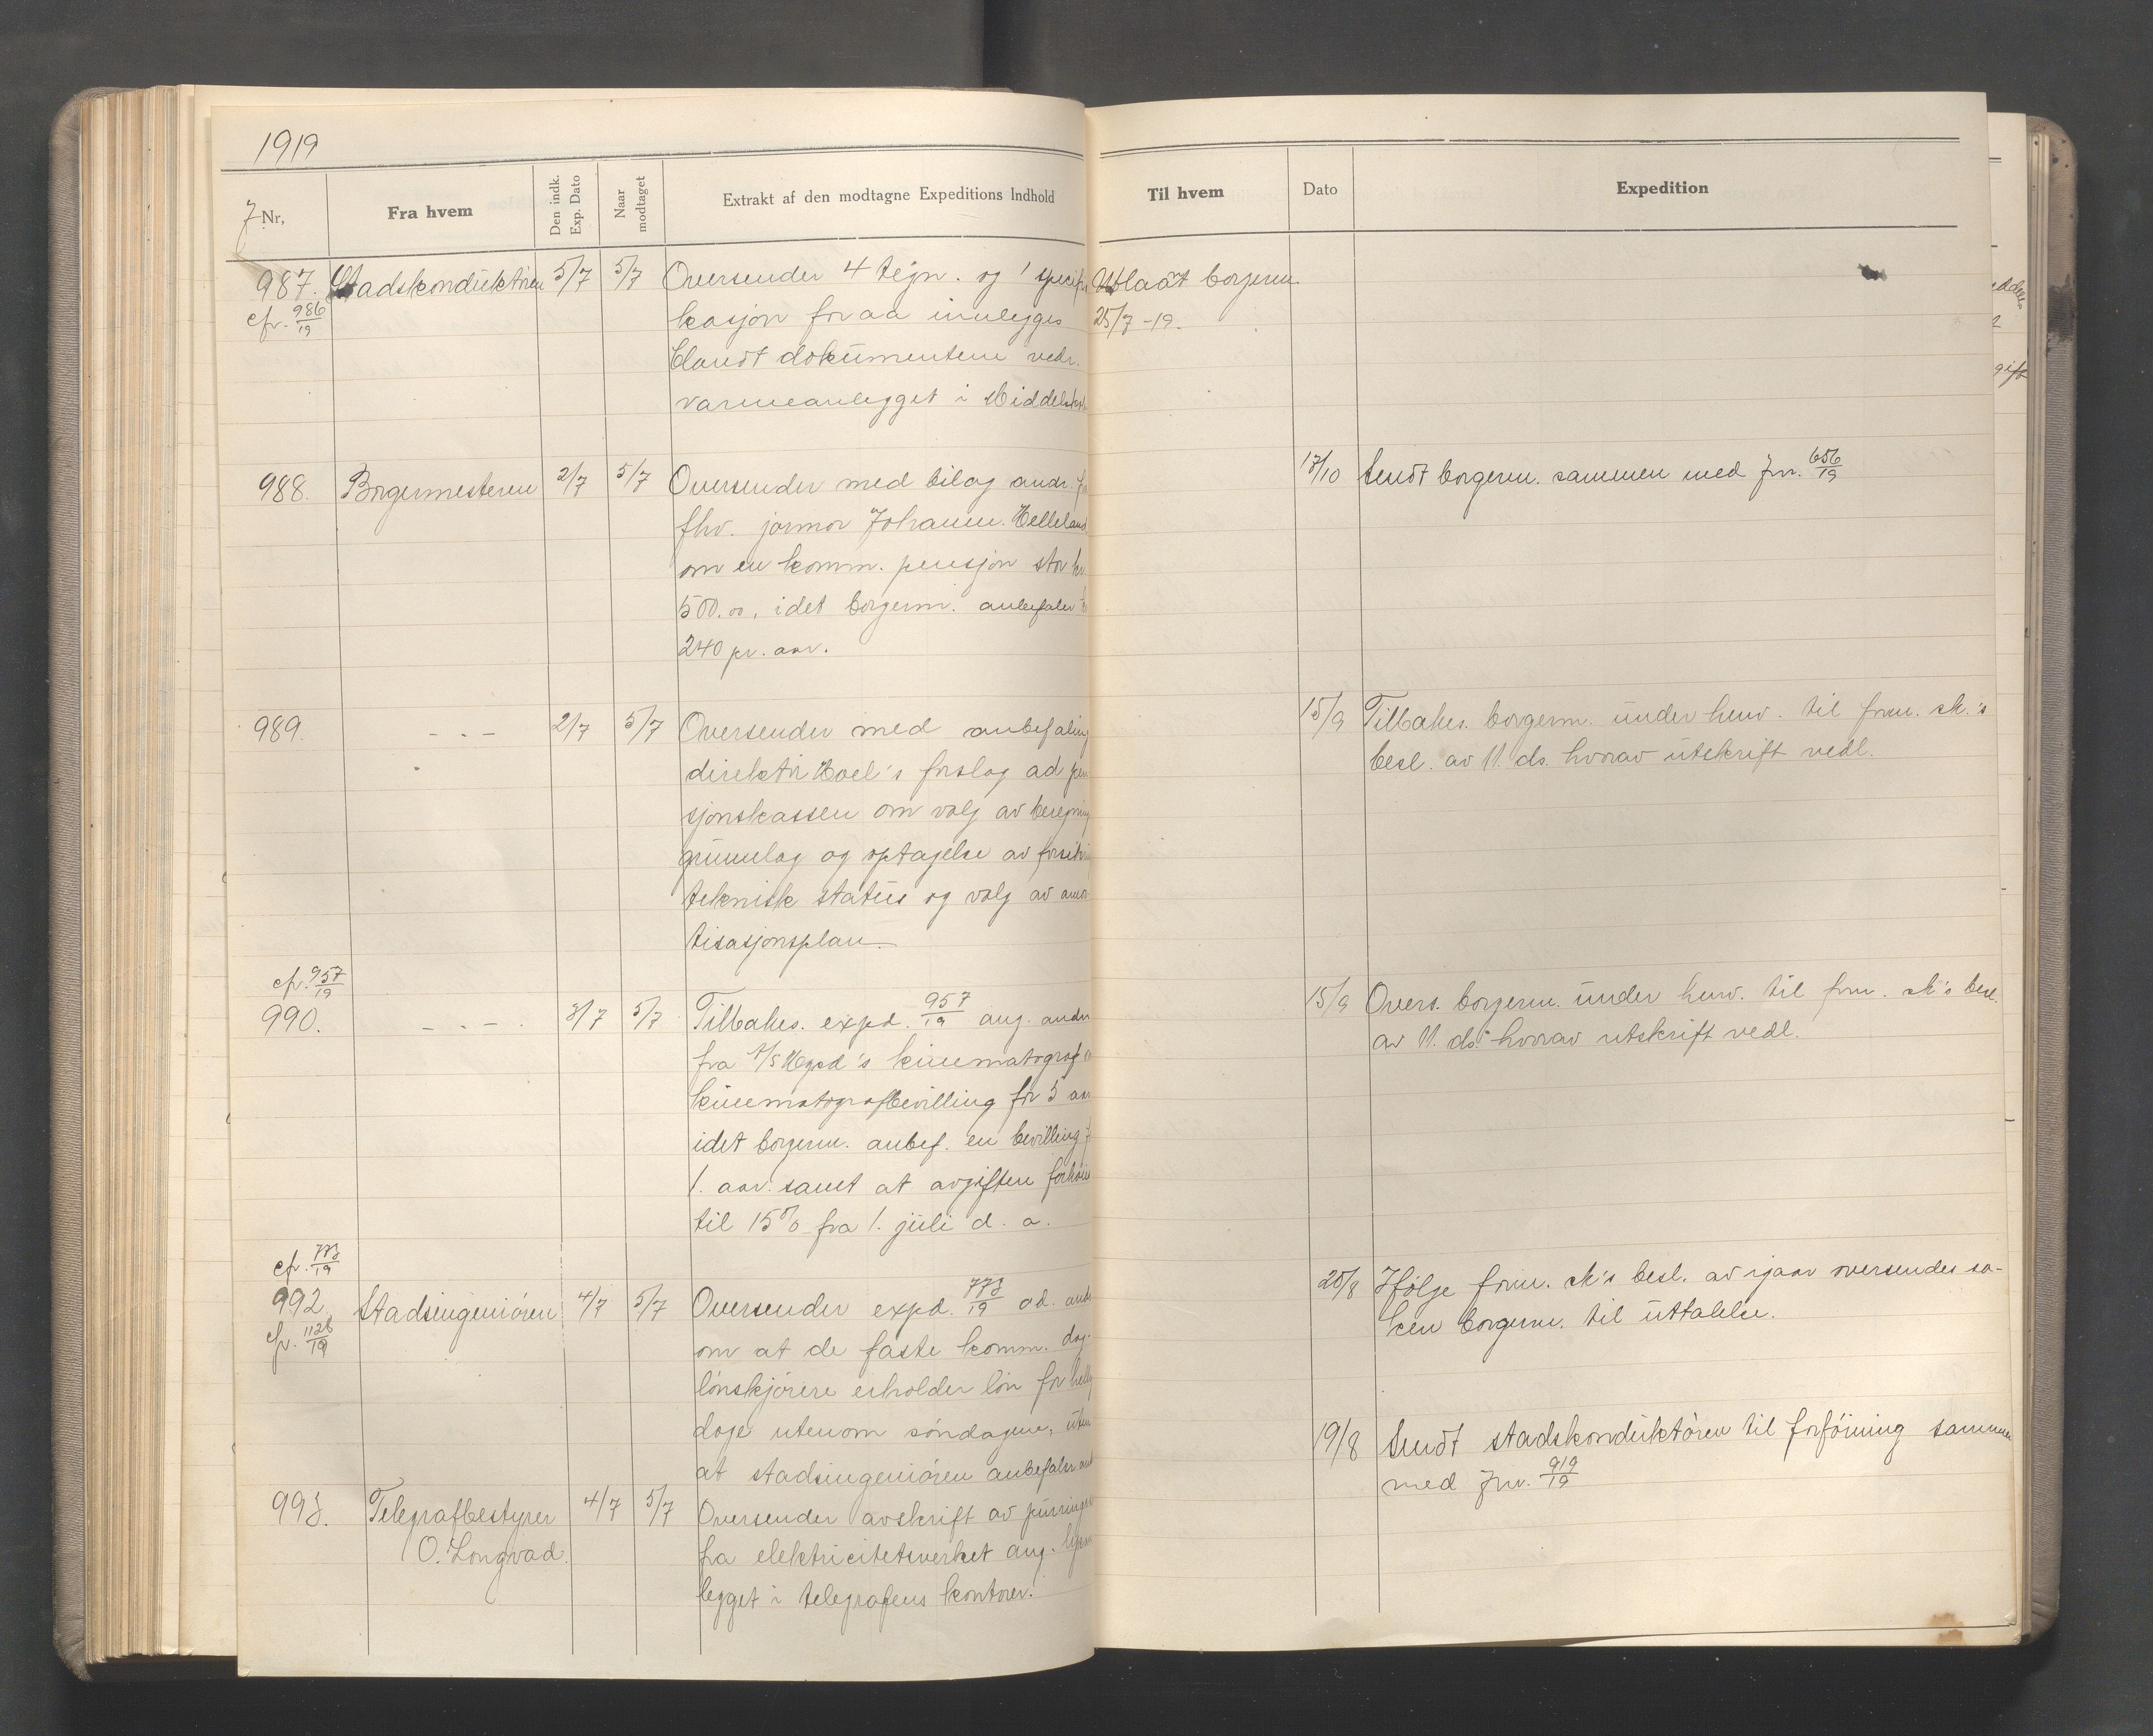 1919
J. Nr,
Fra hvem
Den indk. Exp. Dato
Naar modtaget
Extrakt af den modtagne Expeditions Indhold
Til hvem
Dato
Expedition
987. Stadskonduktøren 5/7 5/7 Oversender 4 tegn. og 1 specifi
cfr. 986/19 kasjon for aa innlegges
blandt dokumentene vedr.
varmeanlegget i Middelsk
Utlaant borgerm.
25/7 -19.
988. Borgermesteren 2/7 5/7 Oversender med bilag andr. f
fhv. jormor Johanne Helleland
om en komm. pensjon stor kr.
500.00, idet borgerm. anbefaler
240 pr. aar.
17/10 Sendt borgerm. sammen med Jnr. 656/19
989. - - - 2/7 5/7 Oversender med anbefaling
direktør Hoel's forslag ad pen
sjonskassen om valg av beregning
grunnlag og optagelse av forsikr
teknisk status og valg av amor
tisasjonsplan.
15/9 Tilbakes. borgerm. under henv. til form. sk.'s
besl. av 11. ds. hvorav utskrift vedl.
cfr. 957/19
990. - - - 3/7 5/7 Tilbakes. expd. 957/19 ang. andr
fra A/S Hgsd's kinematograf
kinematografbevilling for 5 aar
idet borgerm. anbef. en bevilling f
1. aar samt at avgiften forhøies
til 15% fra 1. juli d. a.
15/9 Overs. borgerm. under henv. til form. sk's besl.
av 11. ds. hvorav utskrift vedl.
cfr. 773/19
992. Stadsingeniøren 4/7 5/7 Oversender expd. 773/19 ad. andr
cfr. 1126/19 om at de faste komm. dag-
lønskjørere erholder løn for hellig
dage utenom søndagene, uten
at stadsingeniøren anbefaler and
20/8 Ifølge form. sk's besl. av igaar oversendes sa-
ken borgerm. til uttalelse.
993. Telegrafbestyrer 4/7 5/7 Oversender avskrift av purringe
O. Longvad. fra elektricitetsverket ang. lysan
legget i telegrafens kontorer.
19/8 Sendt stadskonduktøren til forføining sammen
med Jnr. 919/19